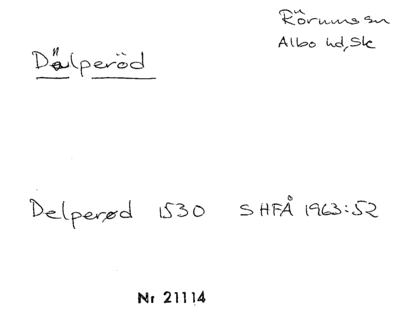 Rörums sn
Albo hd, Sk
Dälperöd
Delperød 1530 SHFÅ 1963:52
Nr 21114